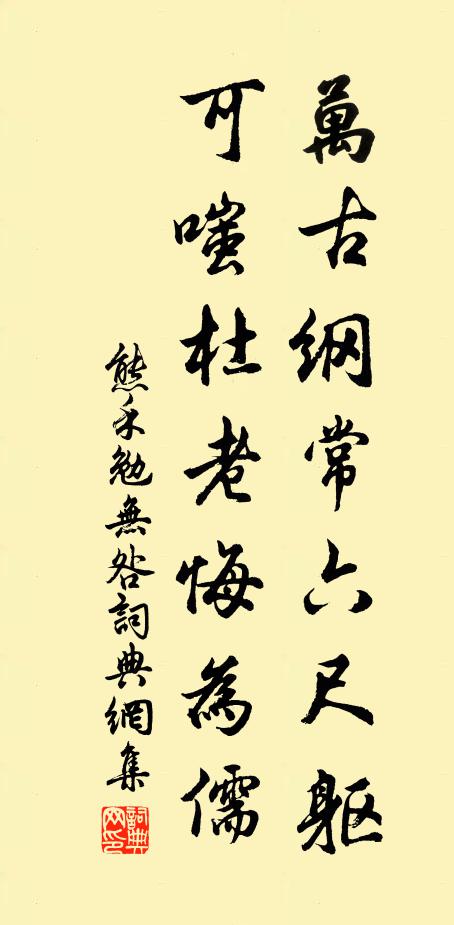 萬古纲常六尺躯
可嗤杜老悔為儒
熊禾勉無咎詞典網集
詞典网印